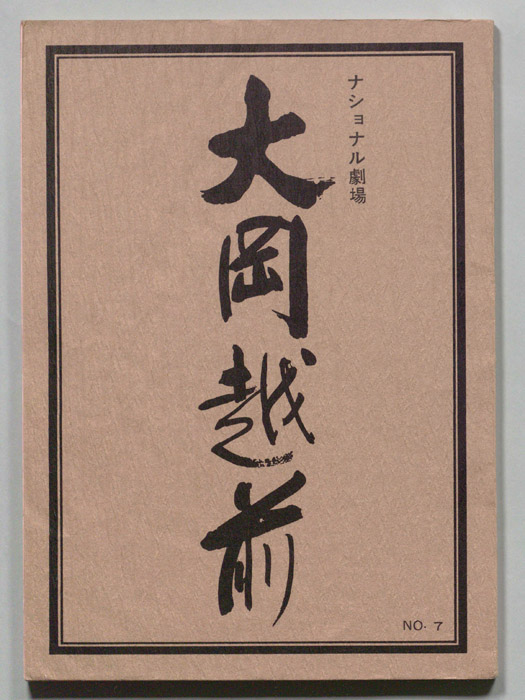 ナショナル劇場
大岡越前
NO. 7